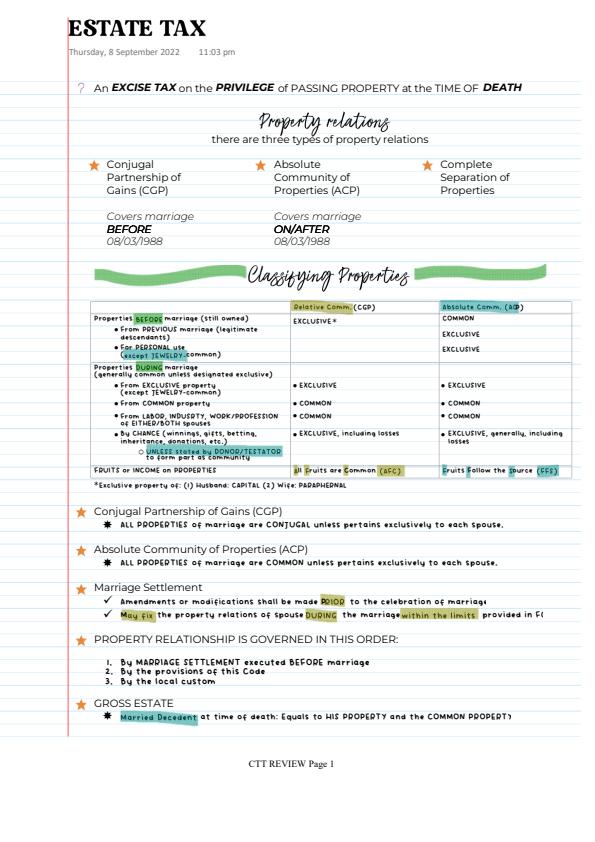 ESTATE TAX
Thursday, 8 September 2022 11:03 pm
? An EXCISE TAX on the PRIVILEGE of PASSING PROPERTY at the TIME OF DEATH
Property relations
there are three types of property relations
Conjugal Partnership of Gains (CGP)
Covers marriage
BEFORE
08/03/1988
Absolute Community of Properties (ACP)
Covers marriage
ON/AFTER
08/03/1988
Complete Separation of Properties
Classifying Properties
Relative Comm. (CGP) Absolute Comm. (ACP)
Properties BEFORE marriage (still owned) EXCLUSIVE* COMMON
• From PREVIOUS marriage (legitimate descendants) EXCLUSIVE
• For PERSONAL use (except JEWELRY-common) EXCLUSIVE
Properties DURING marriage
(generally common unless designated exclusive)
• From EXCLUSIVE property (except JEWELRY-common) • EXCLUSIVE • EXCLUSIVE
• From COMMON property • COMMON • COMMON
• From LABOR, INDUSRTY, WORK/PROFESSION of EITHER/BOTH spouses • COMMON • COMMON
• By CHANCE (winnings, gifts, betting, inheritance, donations, etc.) • EXCLUSIVE, including losses • EXCLUSIVE, generally, including losses
○ UNLESS stated by DONOR/TESTATOR to form part as community
FRUITS or INCOME on PROPERTIES All Fruits are Common (AFC) Fruits Follow the Source (FFS)
*Exclusive property of: (1) Husband: CAPITAL (2) Wife: PARAPHERNAL
Conjugal Partnership of Gains (CGP)
ALL PROPERTIES of marriage are CONJUGAL unless pertains exclusively to each spouse.
Absolute Community of Properties (ACP)
ALL PROPERTIES of marriage are COMMON unless pertains exclusively to each spouse.
Marriage Settlement
✓ Amendments or modifications shall be made PRIOR to the celebration of marriage
✓ May fix the property relations of spouse DURING the marriage within the limits provided in
PROPERTY RELATIONSHIP IS GOVERNED IN THIS ORDER:
1. By MARRIAGE SETTLEMENT executed BEFORE marriage
2. By the provisions of this Code
3. By the local custom
GROSS ESTATE
Married Decedent at time of death: Equals to HIS PROPERTY and the COMMON PROPERTY
CTT REVIEW Page 1